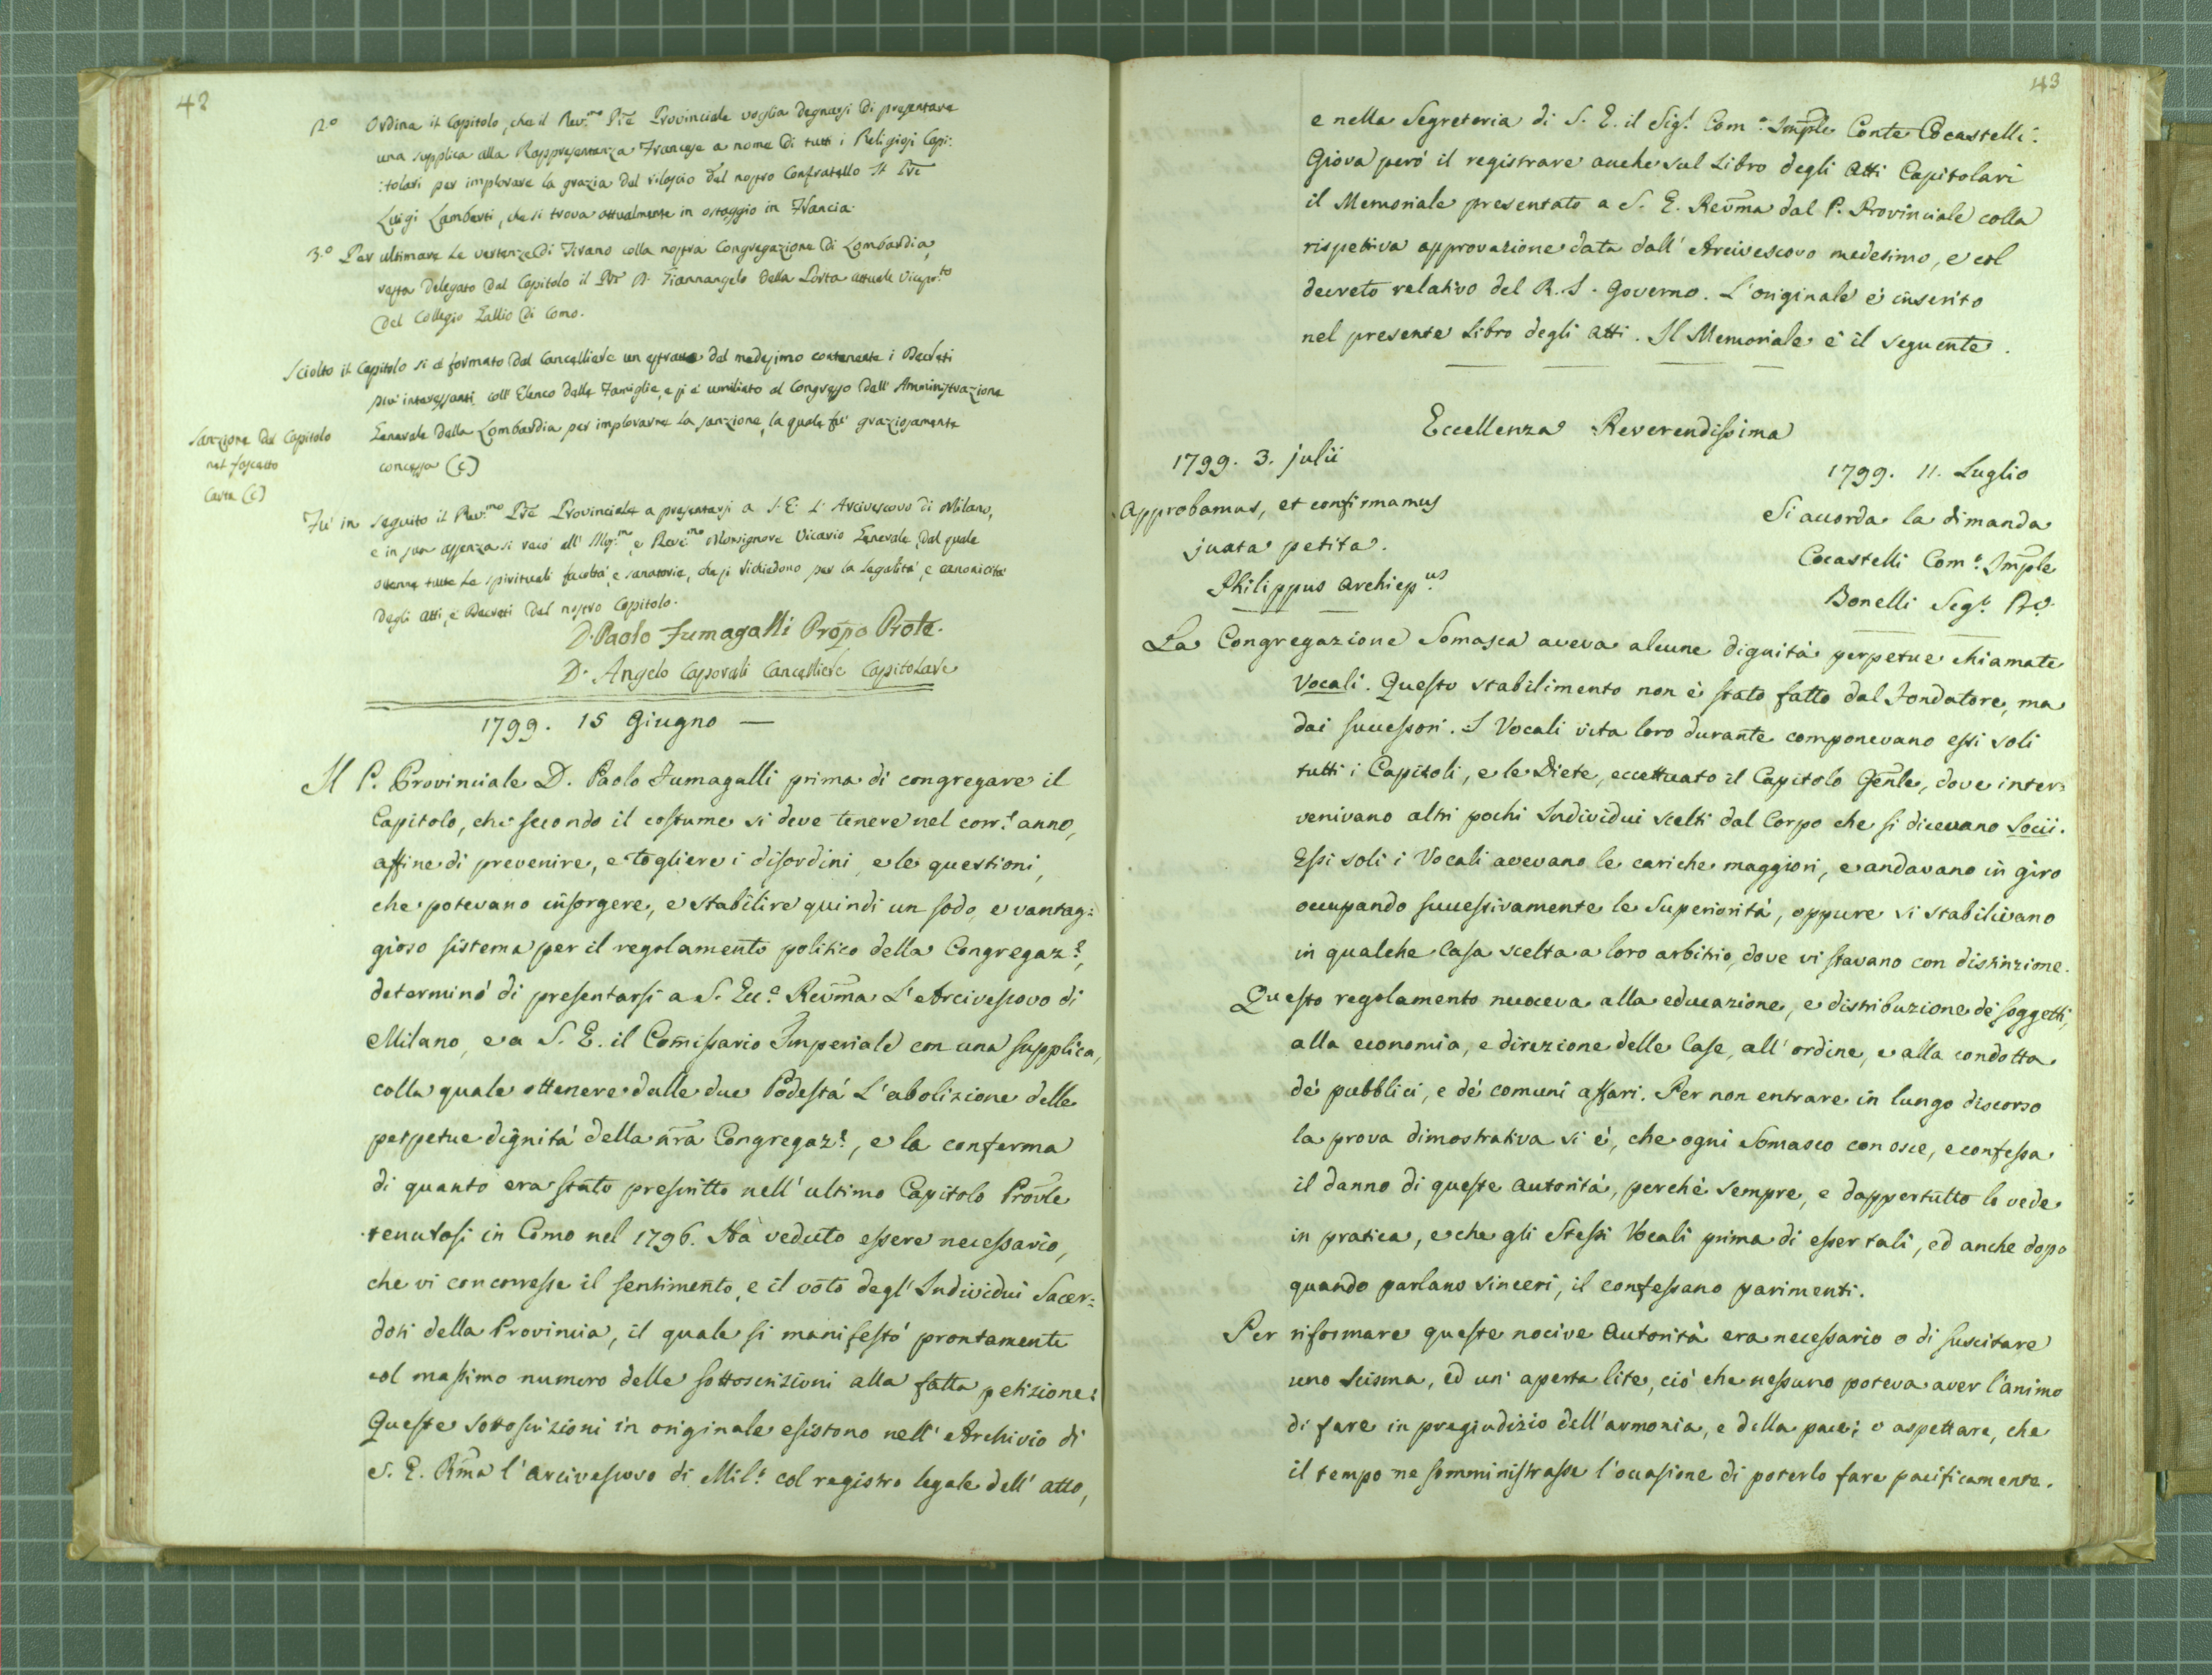 42
2.º Ordina il Capitolo, che il Rev.mo Pre Provinciale voglia degnarsi di presentare
una supplica alla Rappresentanza Francese a nome di tutti i Religiosi Capi:
:tolari per implorare la grazia del rilascio del nostro Confratello il Pre
Luigi Lamberti, che si trova attualmente in ostaggio in Francia.
3.º Per ultimare le vertenze di Tirano colla nostra Congregazione di Lombardia,
resta delegato dal Capitolo il Pre D. Giannangelo della Porta attuale Vicepr.to
del Collegio Gallio di Como.
Sciolto il Capitolo si è formato dal Cancelliere un estratto del medesimo contenente i Decreti
piu' interessanti coll' Elenco delle Famiglie, e si è umiliato al Congresso dell' Amministrazione
Generale della Lombardia per implorarne la sanzione, la quale fu' graziosamente
concessa (C)
Sanzione del Capitolo
nel fascetto
Carta (C)
Fu' in seguito il Rev.mo Pre Provinciale a presentarsi a S. E. L' Arcivescovo di Milano,
e in sua assenza si recò all' Illmo.mo e Reve.mo Monsignore Vicario Generale, dal quale
ottenne tutte le spirituali facoltà, e sanatorie, che si richiedono per la legalità, e canonicità
degli Atti, e Decreti del nostro Capitolo.
D. Paolo Fumagalli Propo Prole.
D. Angelo Caporali Cancelliere Capitolare
1799. 15 Giugno —
Il P. Provinciale D. Paolo Fumagalli prima di congregare il
Capitolo, che secondo il costume si deve tenere nel corr.e anno,
affine di prevenire, e togliere i disordini, e le questioni,
che potevano insorgere, e stabilire quindi un sodo, e vantag:
gioso sistema per il regolamento politico della Congregaz.e,
determinò di presentarsi a S. Ecc.a Revma L'Arcivescovo di
Milano, e a S. E. il Comissario Imperiale con una supplica,
colla quale ottenere dalle due Podestà L'abolizione delle
perpetue dignità della nra Congregaz.e, e la conferma
di quanto era stato prescritto nell' ultimo Capitolo Provle
tenutosi in Como nel 1796. Ha veduto essere necessario,
che vi concorresse il sentimento, e il voto degl' Individui Sacer:
doti della Provincia, il quale si manifestò prontamente
col massimo numero delle sottoscrizioni alla fatta petizione:
Queste sottoscrizioni in originale esistono nell' Archivio di
S. E. Rma l'Arcivescovo di Mil.o col registro legale dell' atto,
43
e nella Segreteria di S. E. il Sig.r Com.o Imple Conte Cocastelli.
Giova però il registrare anche sul Libro degli Atti Capitolari
il Memoriale presentato a S. E. Revma dal P. Provinciale colla
rispettiva approvazione data dall' Arcivescovo medesimo, e col
decreto relativo del R. I. Governo. L'originale è inserito
nel presente Libro degli Atti. Il Memoriale è il seguente.
Eccellenza Reverendissima
1799. 3. julii
Approbamus, et confirmamus
juxta petita.
Philippus Archiep.us
1799. 11. Luglio
Si accorda la dimanda
Cocastelli Com.o Imple
Bonelli Seg.o
La Congregazione Somasca aveva alcune dignità perpetue chiamate
Vocali. Questo stabilimento non è stato fatto dal Fondatore, ma
dai successori. I Vocali vita loro durante componevano essi soli
tutti i Capitoli, e le Diete, eccettuato il Capitolo Genle, dove inter:
venivano altri pochi Individui scelti dal Corpo che si dicevano Socii.
Essi soli i Vocali avevano le cariche maggiori, e andavano in giro
occupando successivamente le Superiorità, oppure si stabilivano
in qualche Casa scelta a loro arbitrio, dove vi stavano con distinzione.
Questo regolamento nuoceva alla educazione, e distribuzione de' soggetti,
alla economia, e direzione delle Case, all' ordine, e alla condotta
de' pubblici, e de' comuni affari. Per non entrare in lungo discorso
la prova dimostrativa si è, che ogni Somasco conosce, e confessa
il danno di queste autorità, perchè sempre, e dappertutto lo vede
in pratica, e che gli Stessi Vocali prima di esser tali, ed anche dopo
quando parlano sinceri, il confessano parimenti.
Per riformare queste nocive autorità era necessario o di suscitare
uno scisma, ed un' aperta lite, ciò che nessuno poteva aver l'animo
di fare in pregiudizio dell' armonia, e della pace; o aspettare, che
il tempo ne somministrasse l'occasione di poterlo fare pacificamente.